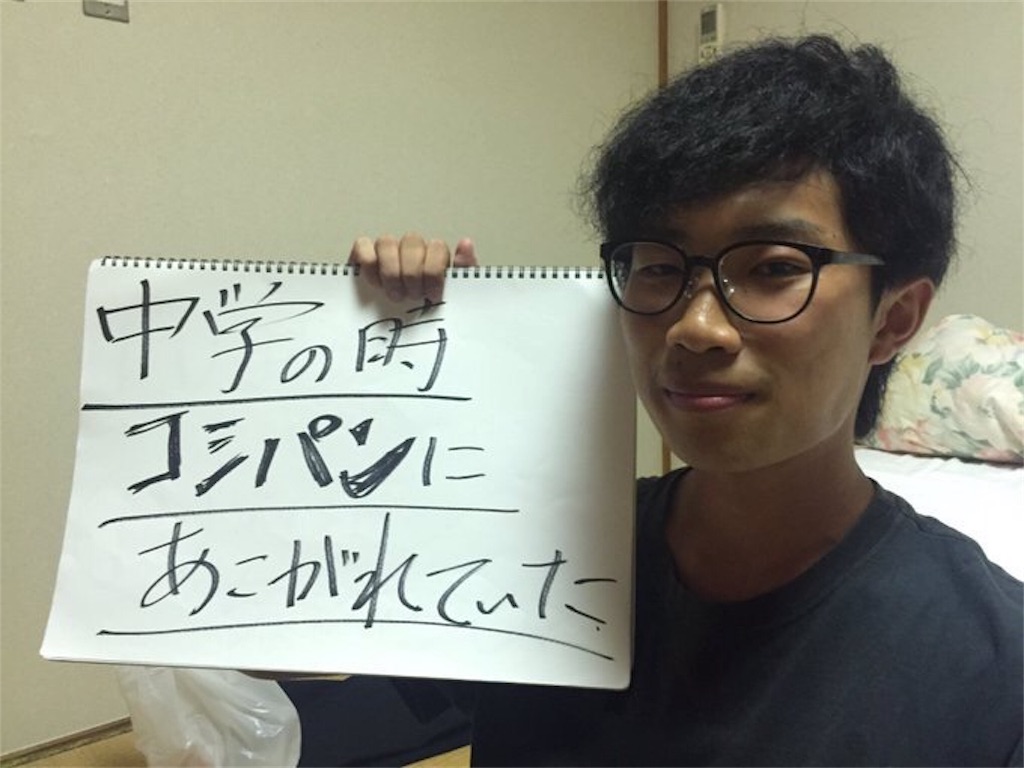 中学の時
コシパンに
あこがれていた.